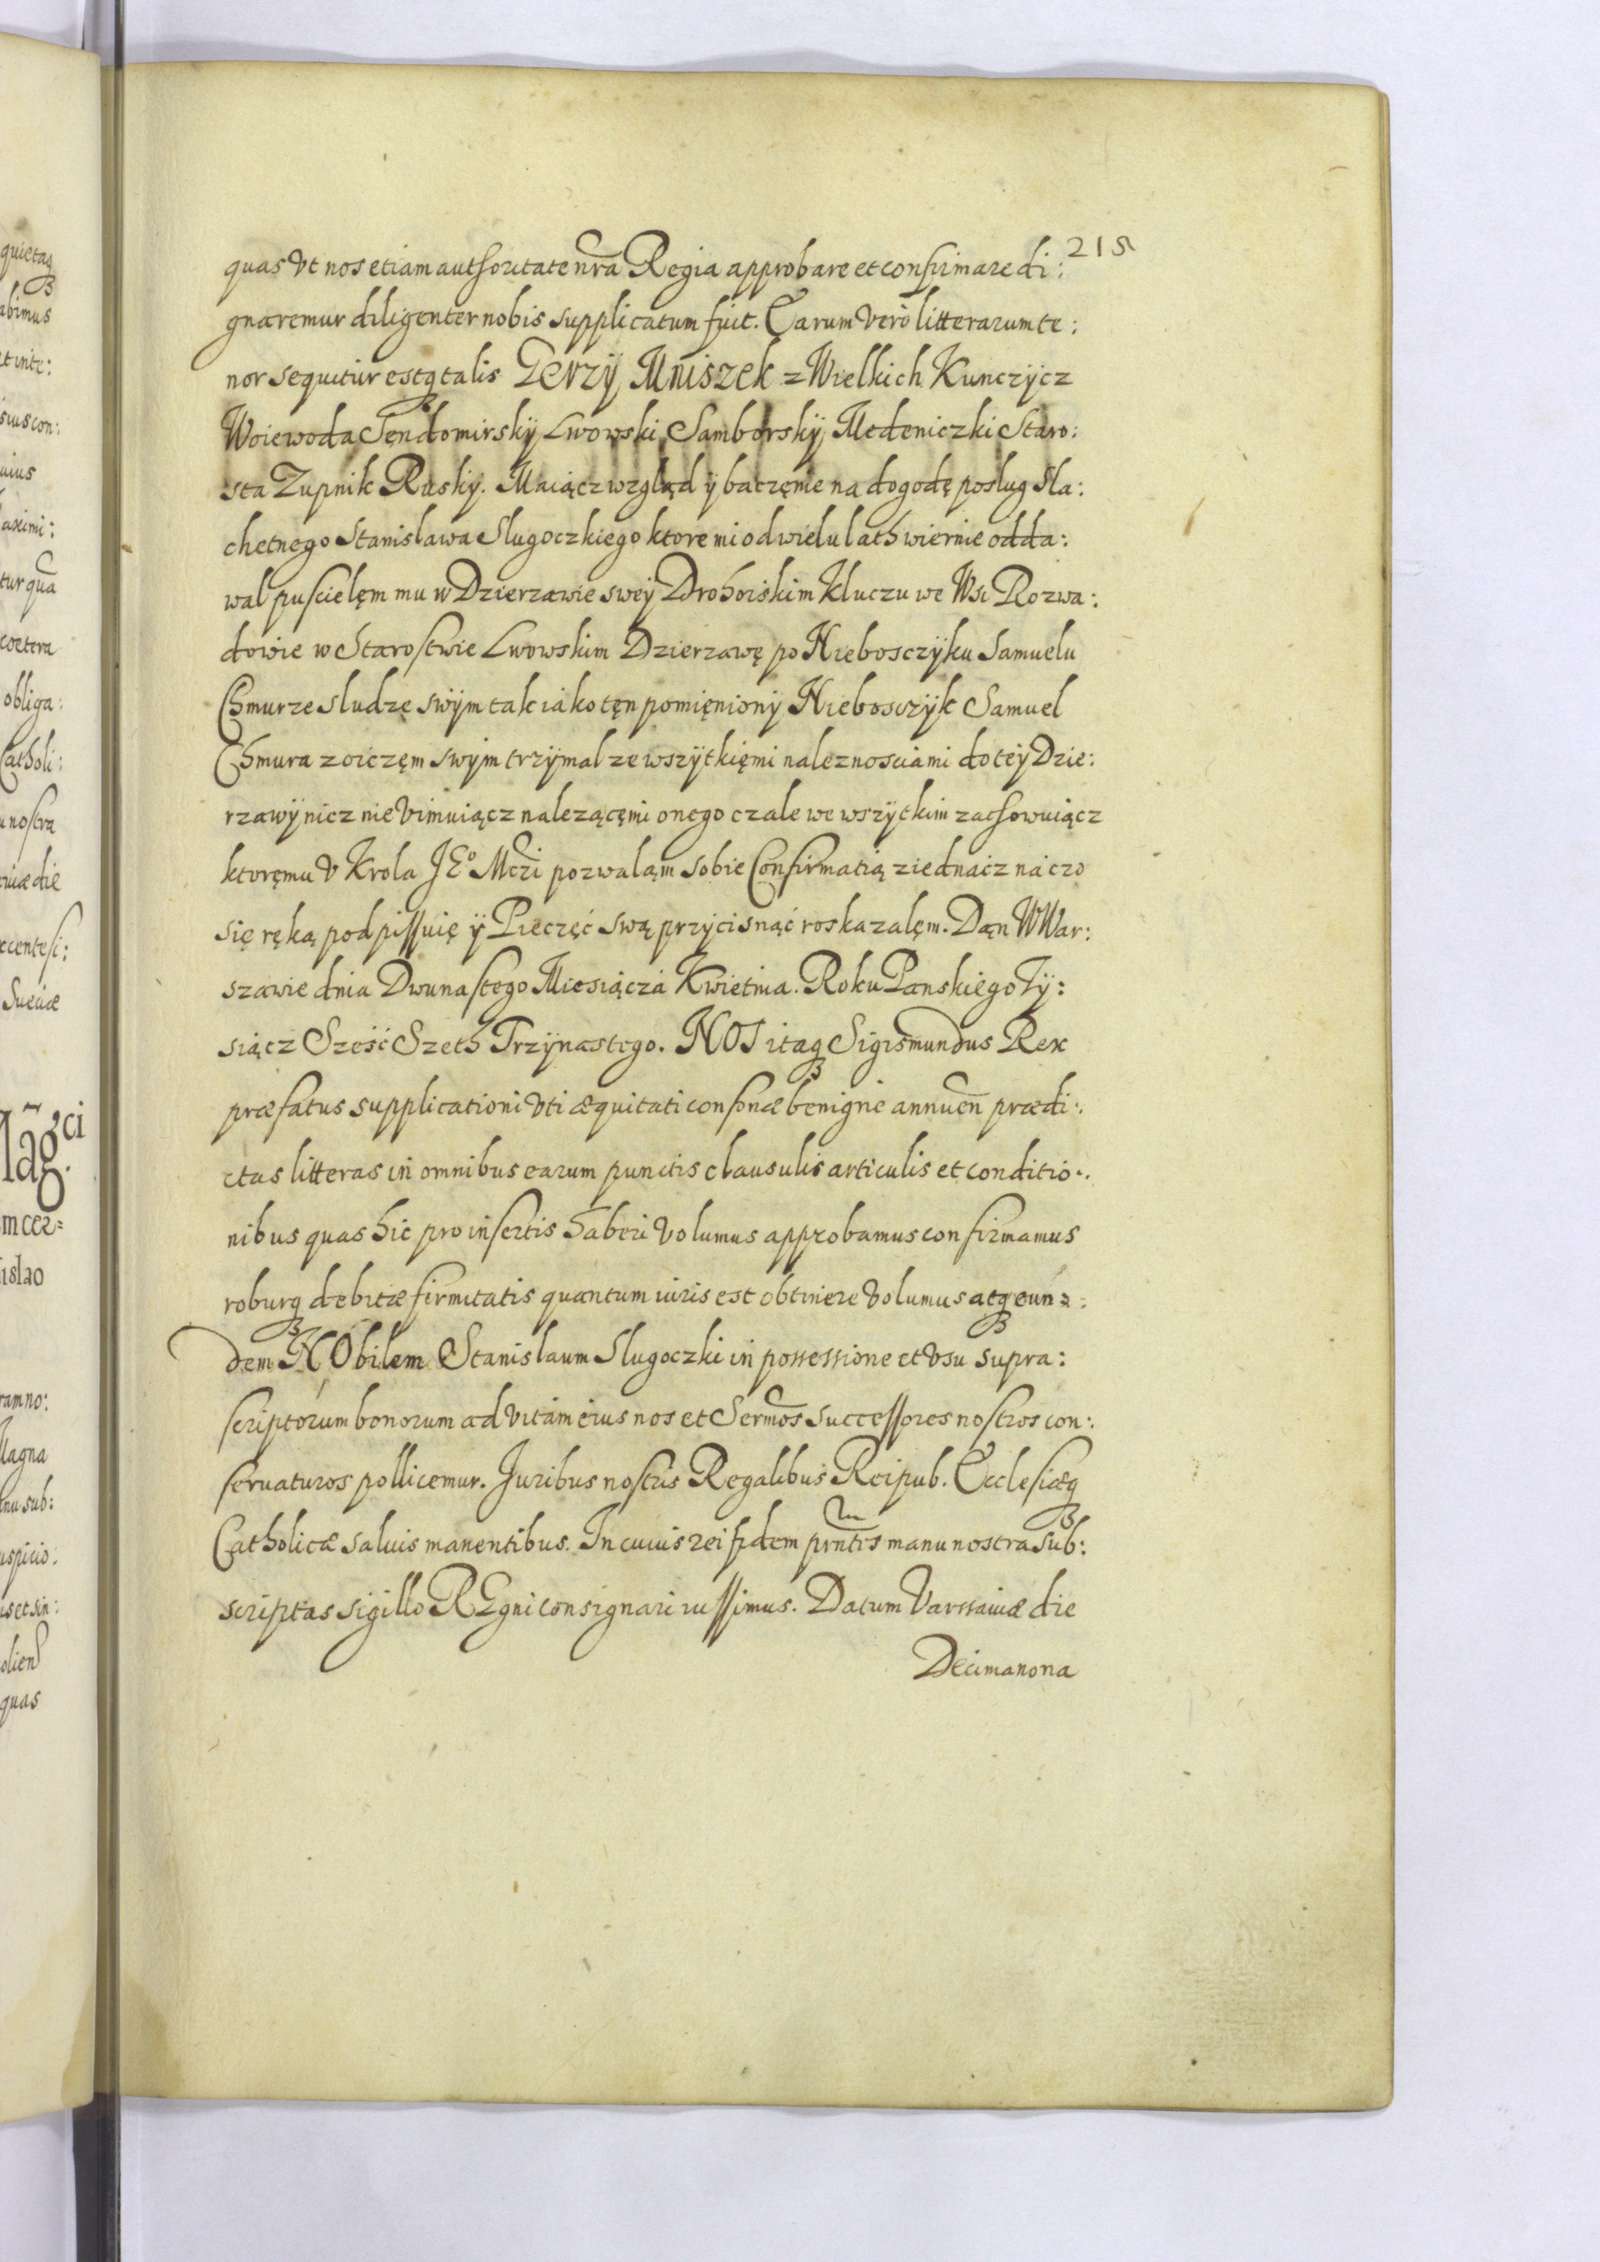 215
quas vt nos etiam authoritate nr̃a Regia approbare et confirmare di:
gnaremur diligenter nobis supplicatum fuit. Earum verò litterarum te:
nor sequitur estq3 talis Jerzy Mniszek z Wielkich Kunczÿcz
Woiewoda Sendomirskÿ Lwowski Samborskÿ, Medeniczki Staro:
sta Zupnik Ruskÿ. Maiącz wzgląd ÿ baczęnie na dogodę poslug Sla:
chetnego Stanislawa Slugoczkiego ktore mi od wielu lath wiernie odda:
wal puscielęm mu w Dzierzawie sweÿ Zdrohoiskim Kluczu we Wsi Rozwa:
dowie w Starostwie Lwowskim Dzierzawę po Nieboszczÿku Samuelu
Chmurze sludze swÿm tak iako tęn pomięnionÿ Nieboszczÿk Samuel
Chmura z oiczęm swÿm trzÿmal ze wszÿtkięmi naleznosciami do teÿ Dzie:
rzawÿ nicz nie vimuiącz nalezączęmi onego czale we wszÿtkim zachowuiącz
ktoręmu v Krola JEo Mczi pozwalam sobie Confirmatią ziednacz na czo
się ręką podpissuię ÿ Pieczęć swą przÿcisnąć roskazalęm. Dąn W War:
szawie dnia Dwunastego Miesiącza Kwietnia. Roku Panskiego Tÿ:
siącz Sześć Szeth Trzÿnastego. NOS itaq3 Sigismundus Rex
præfatus supplicationi vti æquitati consonæ benigne annuen̄ prædi:
ctas litteras in omnibus earum punctis clausulis articulis et conditio:
nibus quas hic pro insertis haberi volumus approbamus confirmamus
roburq3 debitæ firmitatis quantum iuris est obtinere volumus atq3 eun:
dem NObilem Stanislaum Slugoczki in possessione et vsu supra:
scriptorum bonorum ad vitam eius nos et Serm̃os successores nostros con:
seruaturos pollicemur. Juribus nostris Regalibus Reipub. Ecclesiæq3
Catholicæ saluis manentibus. In cuius rei fidem pr̃ntes manu nostra sub:
scriptas sigillo REgni consignari iussimus. Datum Varssauiæ die
Decimanona